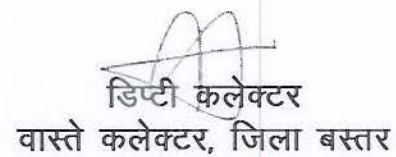 डिप्टी कलेक्टर
वास्ते कलेक्टर, जिला बस्तर